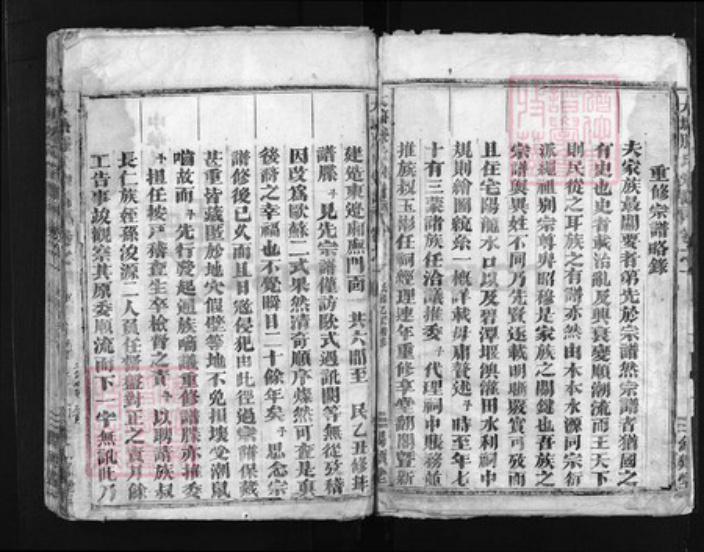 重修宗譜略錄
夫家族最關要者第先於宗譜然宗譜者猶國之
有史也史者載治亂及興衰變順潮流而王天下
則民從之耳族之有譜亦然由木本水源同宗衍
派繩祖別宗尊與昭穆是家族之關鍵也吾族之
宗譜與異姓不同乃先賢迭載明晰嚴實可攷而
且住宅陽龍水口以及碧潭堰澳灌田水利祠中
規則繪圖統系一概詳載毋庸贅述予時至年七
十有三蒙諸族任洽議推委予代理祠中服務並
推族叔玉彬任祠經理連年重修享堂翻閣暨新
建造東邊廂廡門面一共六間至民乙丑修珙
譜牒予見先宗譜僅訪歐式過訊閱等無從攷稽
因改為歐蘇二式果然清奇順序燦然可查是真
後裔之幸福也不覺瞬目二十餘年矣予思念宗
譜修後已久而且日冦侵犯由此徑過宗譜保藏
甚重皆藏匿於地穴假壁等地不免損壞受潮鼠
嚙故而予先行發起通族嗃議重修譜牒亦推委
予担任按戶稽查生卒檢督之責予以聊譜族叔
長仁族姪孫浚源二人負任督盤對正之責月餘
工告事竣觀察其原委順流而下一字無訊此乃